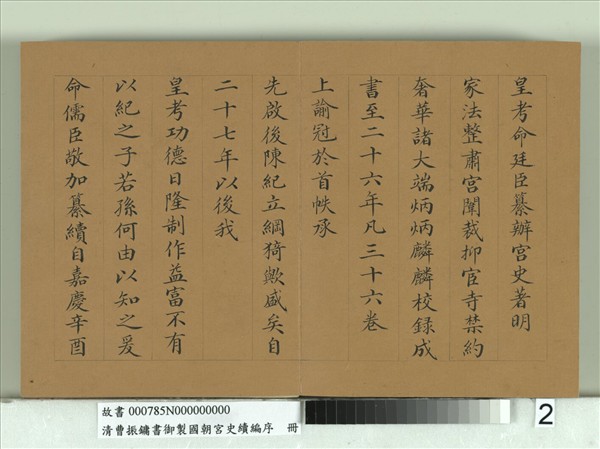 皇考命廷臣纂辦宮史著明
家法整肅宮闈裁抑宦寺禁約
奢華諸大端炳炳麟麟校録成
書至二十六年凡三十六卷
上諭冠於首帙承
先啟後陳紀立綱猗歟盛矣自
二十七年以後我
皇考功德日隆制作益富不有
以紀之子若孫何由以知之爰
命儒臣敬加纂續自嘉慶辛酉
故書 000785N000000000
清曹振鏞書御製國朝宮史續編序 冊
2